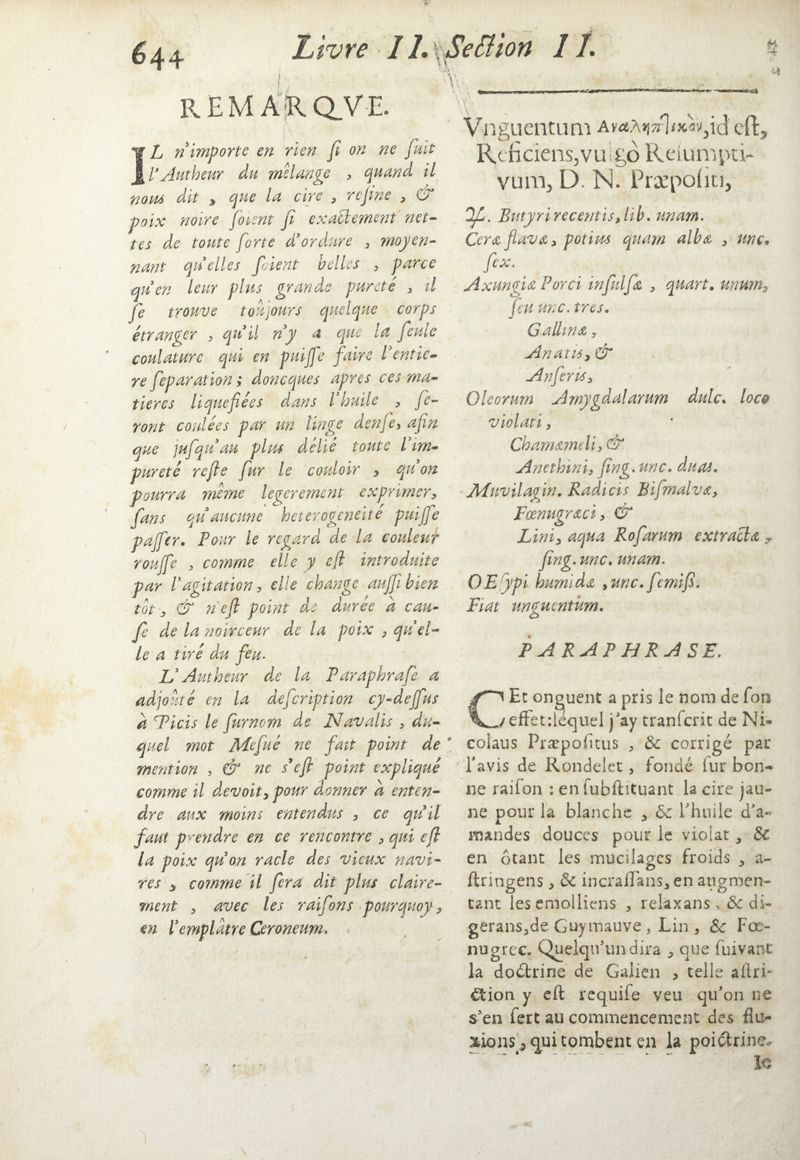 644
Livre II. Section II.
REMARQVE.
IL n'importe en rien ſi on ne ſuit
l'Autheur du mêlange , quand il
nous dit , que la cire , reſine , &
poix noire ſoient ſi exactement net-
tes de toute ſorte d'ordure , moyen-
nant qu'elles ſoient belles , parce
qu'en leur plus grande pureté , il
ſe trouve toûjours quelque corps
étranger , qu'il n'y a que la ſeule
coulature qui en puiſſe faire l'entie-
re ſeparation ; doncques apres ces ma-
tieres liquefiées dans l'huile , ſe-
ront coulées par un linge denſe, afin
que juſqu'au plus délié toute l'im-
pureté reſte ſur le couloir , qu'on
pourra même legerement exprimer,
ſans qu'aucune heterogeneité puiſſe
paſſer. Pour le regard de la couleur
rouſſe , comme elle y eſt introduite
par l'agitation, elle change auſſi bien
tôt , & n'eſt point de durée à cau-
ſe de la noirceur de la poix , qu'el-
le a tiré du feu.
L'Autheur de la Paraphraſe a
adjoûté en la deſcription cy-deſſus
à Picis le ſurnom de Navalis , du-
quel mot Meſué ne fait point de
mention , & ne s'eſt point expliqué
comme il devoit, pour donner à enten-
dre aux moins entendus , ce qu'il
faut prendre en ce rencontre , qui eſt
la poix qu'on racle des vieux navi-
res , comme il ſera dit plus claire-
ment , avec les raiſons pourquoy,
en l'emplâtre Ceroneum.
Vnguentum Αναληπτικὸν, id eſt,
Reficiens, vulgò Reſumpti-
vum, D. N. Præpoſiti,
℞. Butyri recentis, lib. unam.
Ceræ flavæ, potius quam albæ , unc.
ſex.
Axungiæ Porci inſulſæ , quart. unum,
ſeu unc. tres.
Gallinæ ,
Anatis, &
Anſeris,
Oleorum Amygdalarum dulc. loco
violati ,
Chamæmeli, &
Anethini, ſing. unc. duas.
Muvilagin. Radicis Biſmalvæ,
Fœnugræci , &
Lini, aqua Roſarum extractæ ,
ſing. unc. unam.
OEſypi humidæ , unc. ſemiß.
Fiat unguentum.
PARAPHRASE.
CEt onguent a pris le nom de ſon
effet: lequel j'ay tranſcrit de Ni-
colaus Præpoſitus , & corrigé par
l'avis de Rondelet , fondé ſur bon-
ne raiſon : en ſubſtituant la cire jau-
ne pour la blanche , & l'huile d'a-
mandes douces pour le violat , &
en ôtant les mucilages froids , a-
ſtringens , & incraſſans, en augmen-
tant les emolliens , relaxans , & di-
gerans, de Guymauve , Lin , & Fœ-
nugrec. Quelqu'un dira , que ſuivant
la doctrine de Galien , telle aſtri-
ction y eſt requiſe veu qu'on ne
s'en ſert au commencement des flu-
xions , qui tombent en la poictrine.
le